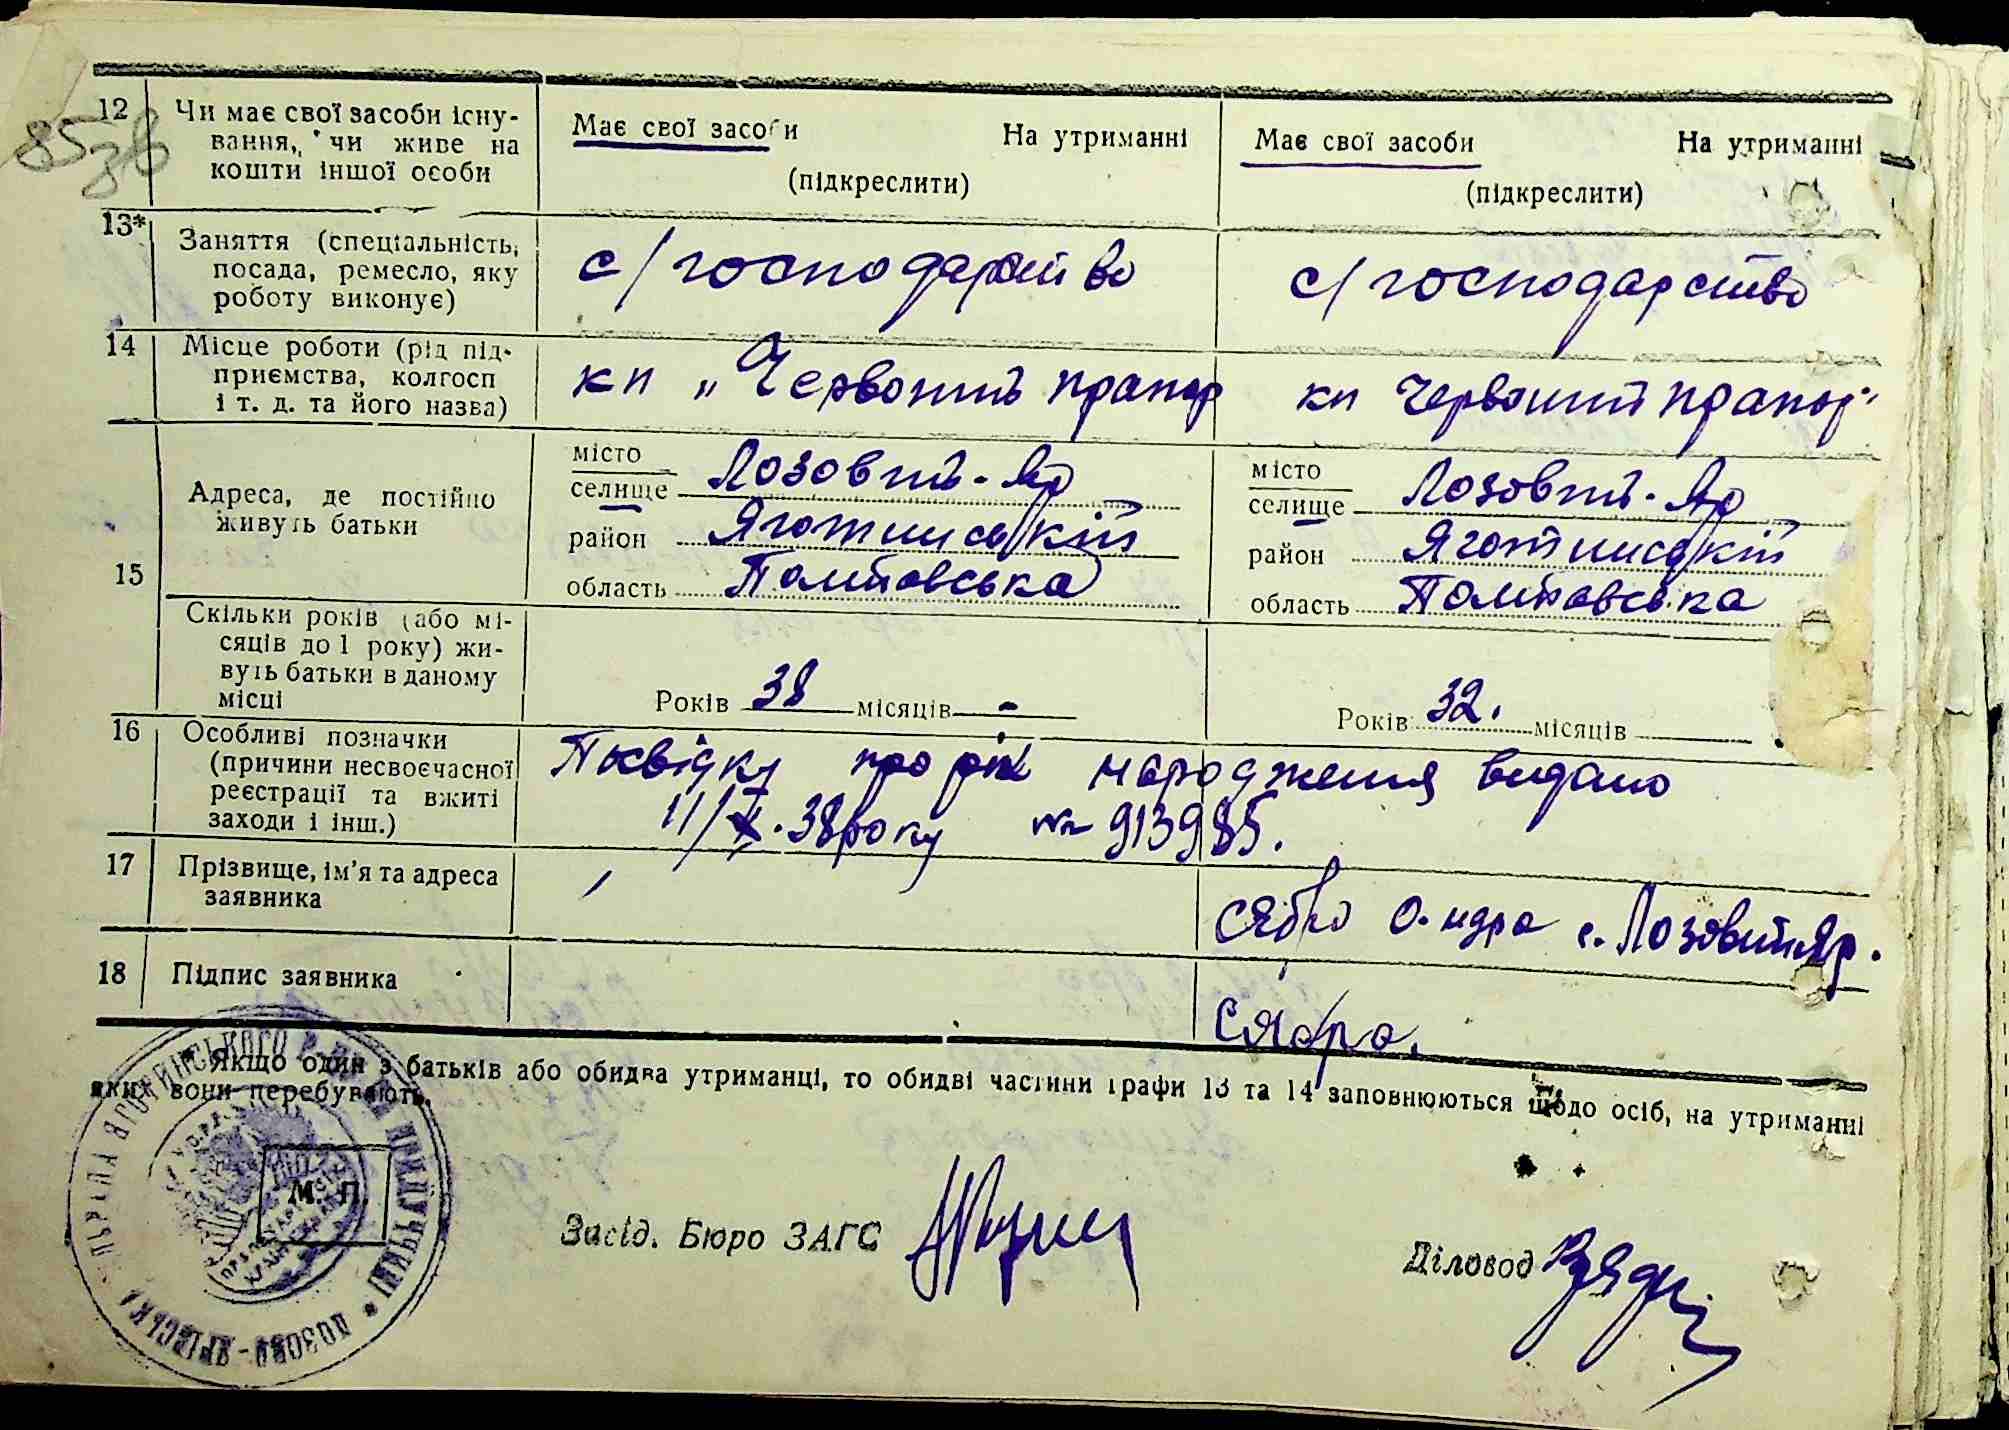 85зв
12 Чи має свої засоби існу-
вання, чи живе на
кошти іншої особи
Має свої засоби На утриманні
(підкреслити)
Має свої засоби На утриманні
(підкреслити)
13* Заняття (спеціальність,
посада, ремесло, яку
роботу виконує)
с/господарство
с/господарство
14 Місце роботи (рід під-
приємства, колгосп
і т. д. та його назва)
кп „Червоний прапор
кп Червоний прапор"
15
Адреса, де постійно
живуть батьки
місто
селище Лозовий-Яр
район Яготинський
область Полтавська
місто
селище Лозовий-Яр
район Яготинський
область Полтавська
Скільки років (або мі-
сяців до 1 року) жи-
вуть батьки в даному
місці
Років 38 місяців -
Років 32. місяців
16 Особливі позначки
(причини несвоєчасної
реєстрації та вжиті
заходи і інш.)
Посвідку про рік народження видано
11/X.38 року № 913985.
17 Прізвище, ім'я та адреса
заявника
Сябро с. Лозовий Яр.
18 Підпис заявника
Сябро.
* Якщо один з батьків або обидва утриманці, то обидві частини графи 13 та 14 заповнюються щодо осіб, на утриманні
яких вони перебувають.
М. П.
Засід. Бюро ЗАГС
Діловод